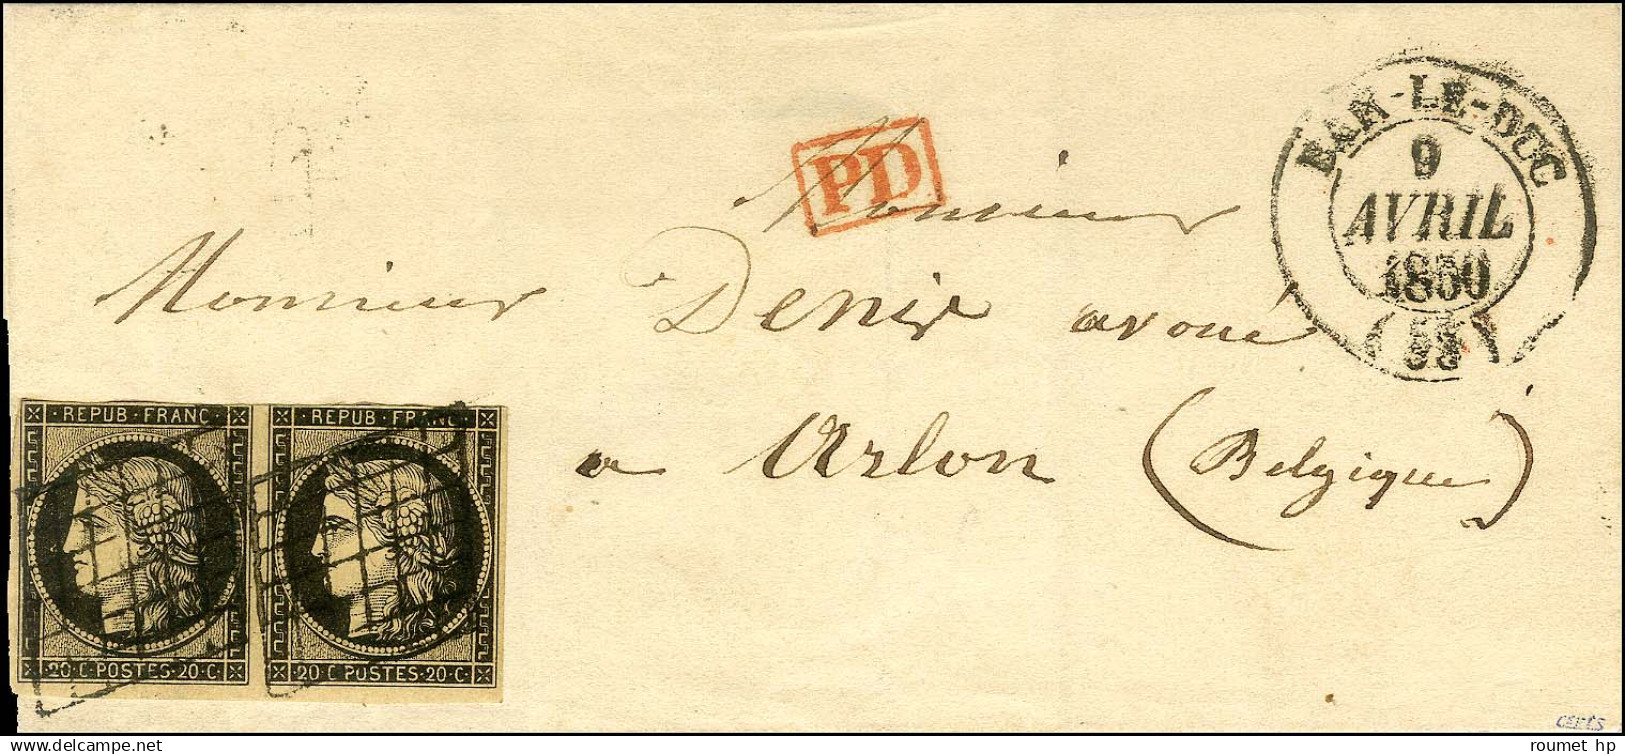 PD
BAR-LE-DUC
9
AVRIL
1850
(55)
Monsieur
Monsieur Denis avoué
a Arlon (Belgique)
REPUB·FRANC·
REPUB·FRANC·
20·C·POSTES·20·C·
20·C·POSTES·20·C·
CERES
www.delcampe.net
roumet hp